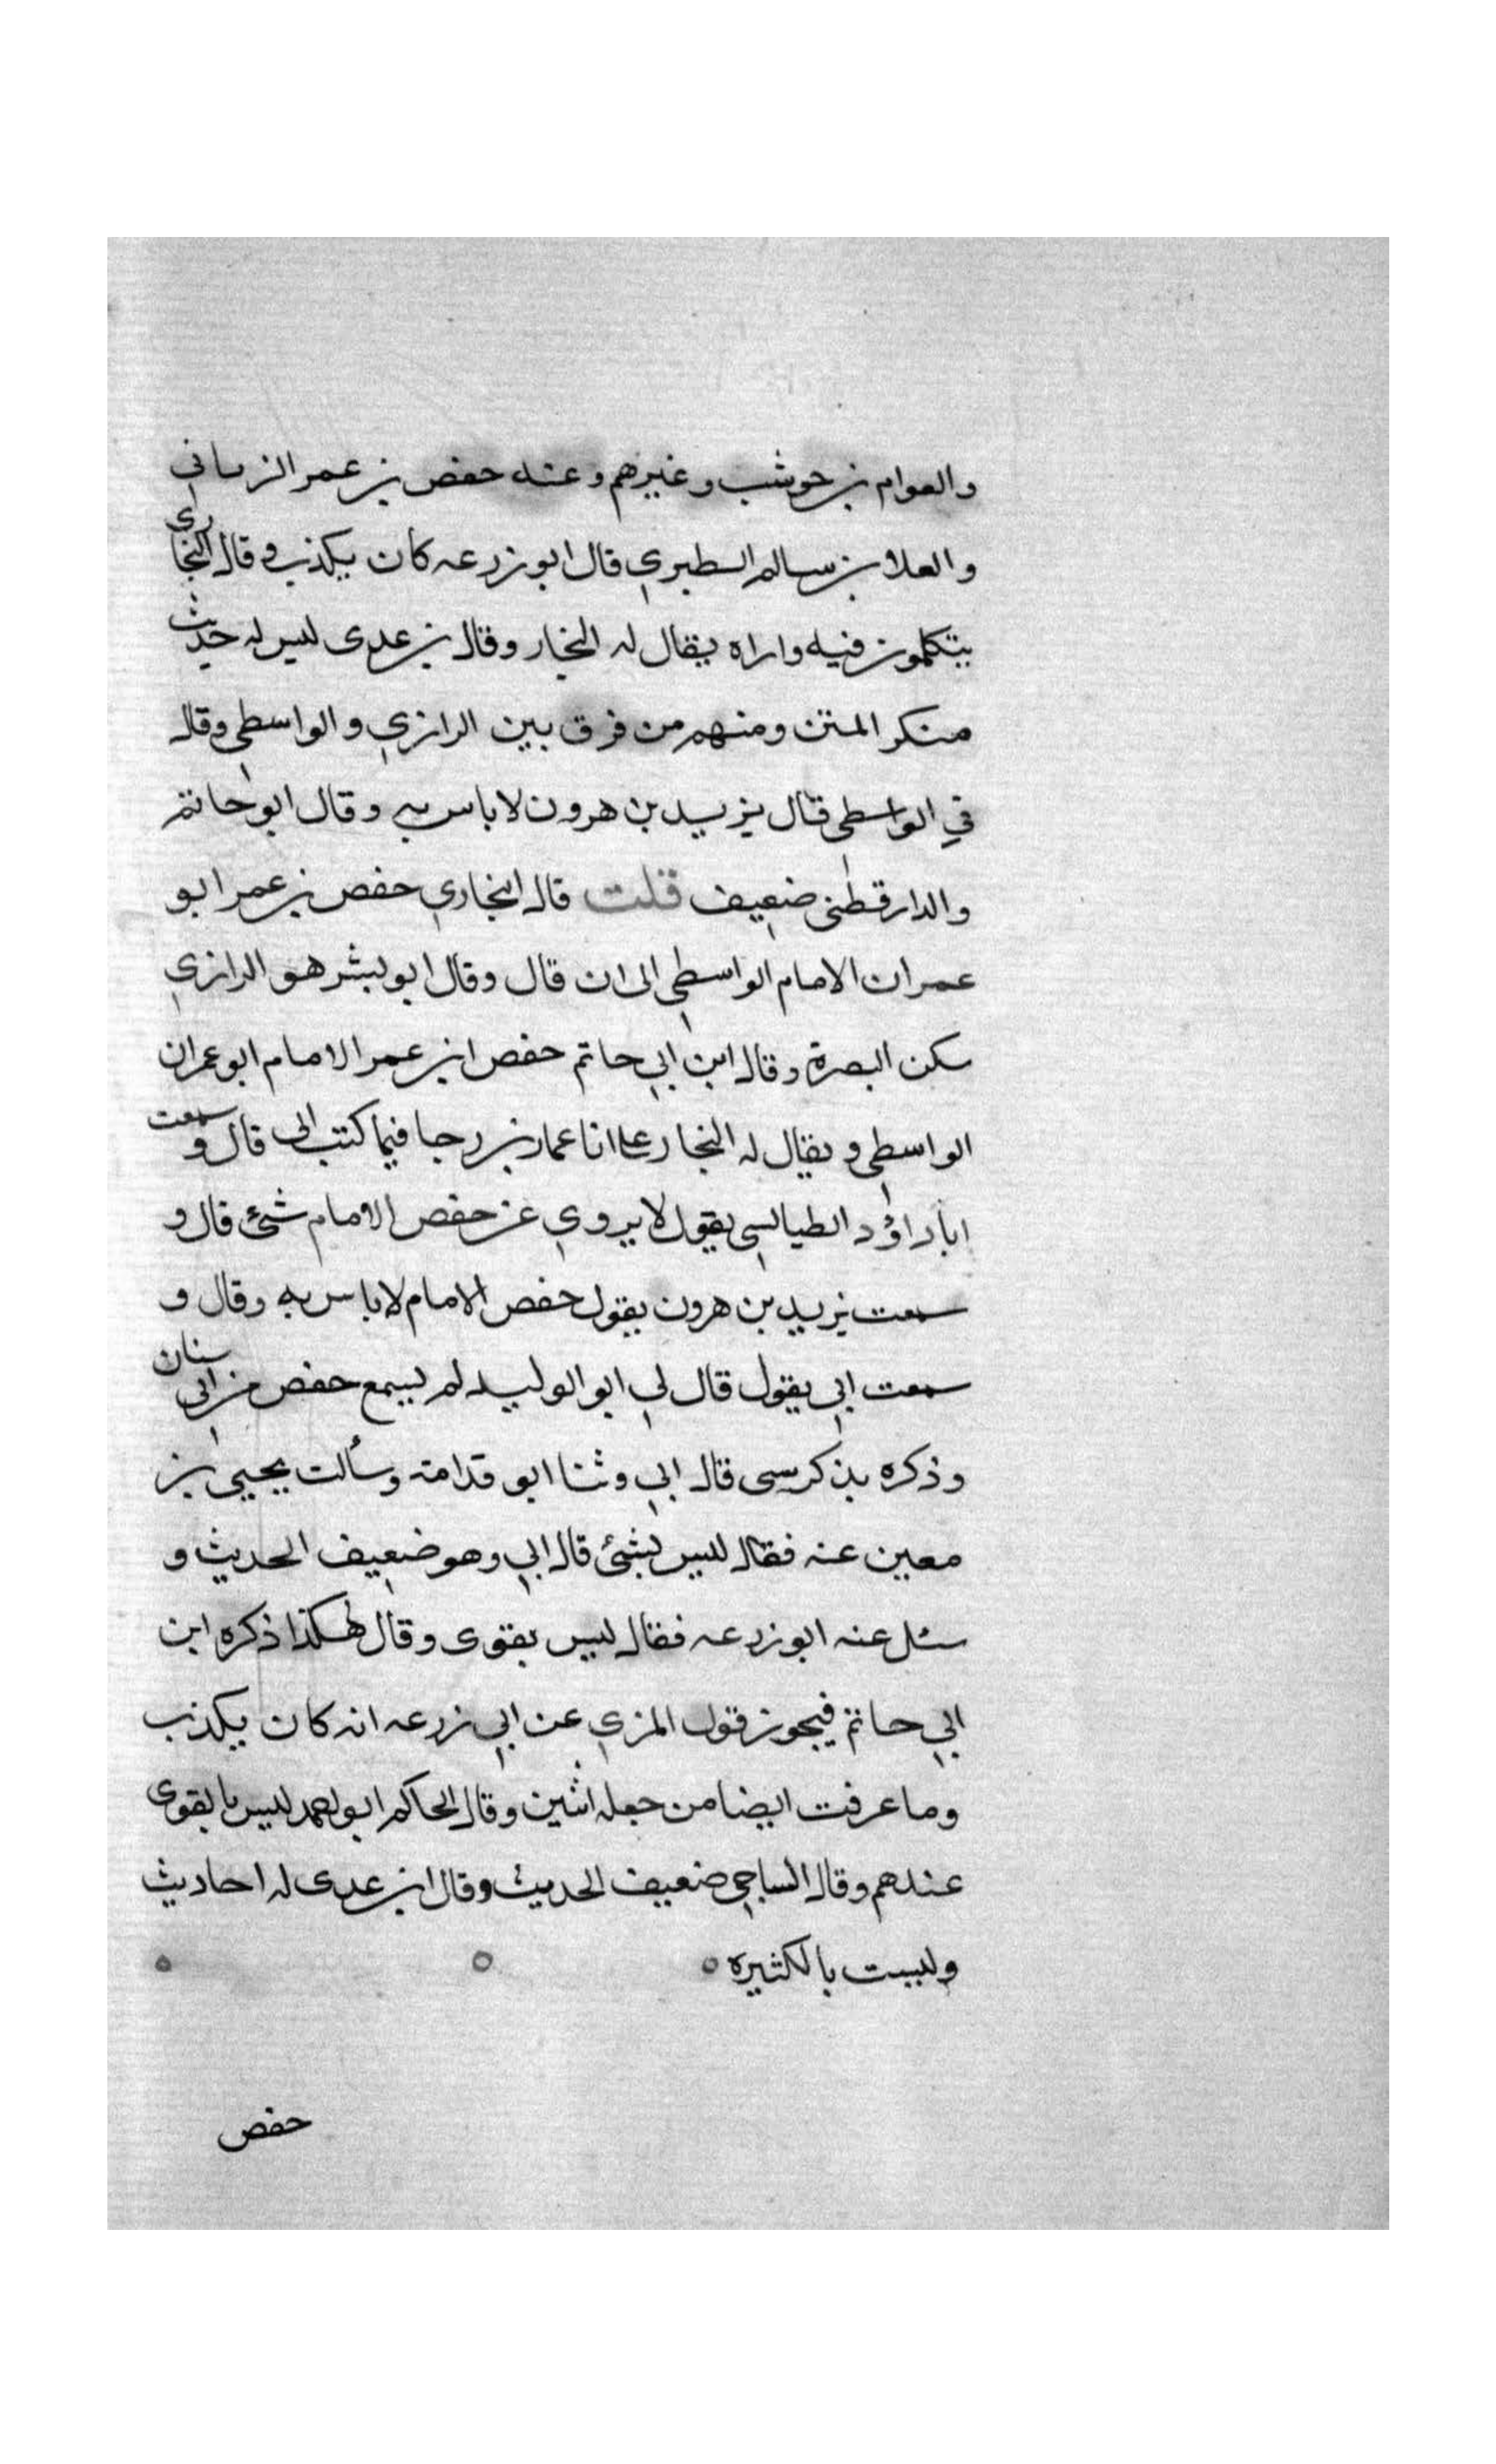 والعوام بن حوشب وغيرهم وعنه حفص بن عمر الزماني
والعلا بن سالم الطبري قال ابو زرعه كان يكذب وقال البخاري
يتكلمون فيه واراه يقال له النجار وقال بن عدى ليس له حديث
منكر المتن ومنهم من فرق بين الرازي والواسطي وقال
في الواسطي قال يزيد بن هرون لا باس به وقال ابو حاتم
والدارقطني ضعيف قلت قال البخاري حفص بن عمر ابو
عمران الامام الواسطي الى ان قال وقال ابو بشر هو الرازي
سكن البصرة وقال ابن ابي حاتم حفص ابن عمر الامام ابو عمران
الواسطي ويقال له النجار انا عمار بن رجا فيما كتب الى قال وسمعت
ابا داؤد الطيالسي يقول لا يروي عن حفص الامام شئ قال و
سمعت يزيد بن هرون يقول حفص الامام لا باس به وقال و
سمعت ابي يقول قال لي ابو الوليد لم يسمع حفص من ابي سنان
وذكره بذكر سى قال ابي وثنا ابو قدامة وسألت يحيى بن
معين عنه فقال ليس بشئ قال ابي وهو ضعيف الحديث و
سئل عنه ابو زرعه فقال ليس بقوى وقال هكذا ذكره ابن
ابي حاتم فيجوز قول المزي عن ابي زرعه انه كان يكذب
وما عرفت ايضا من جعله اثنين وقال الحاكم ابو احمد ليس بالقوى
عندهم وقال الساجي ضعيف الحديث وقال ابن عدى له احاديث
وليست بالكثيره
حفص